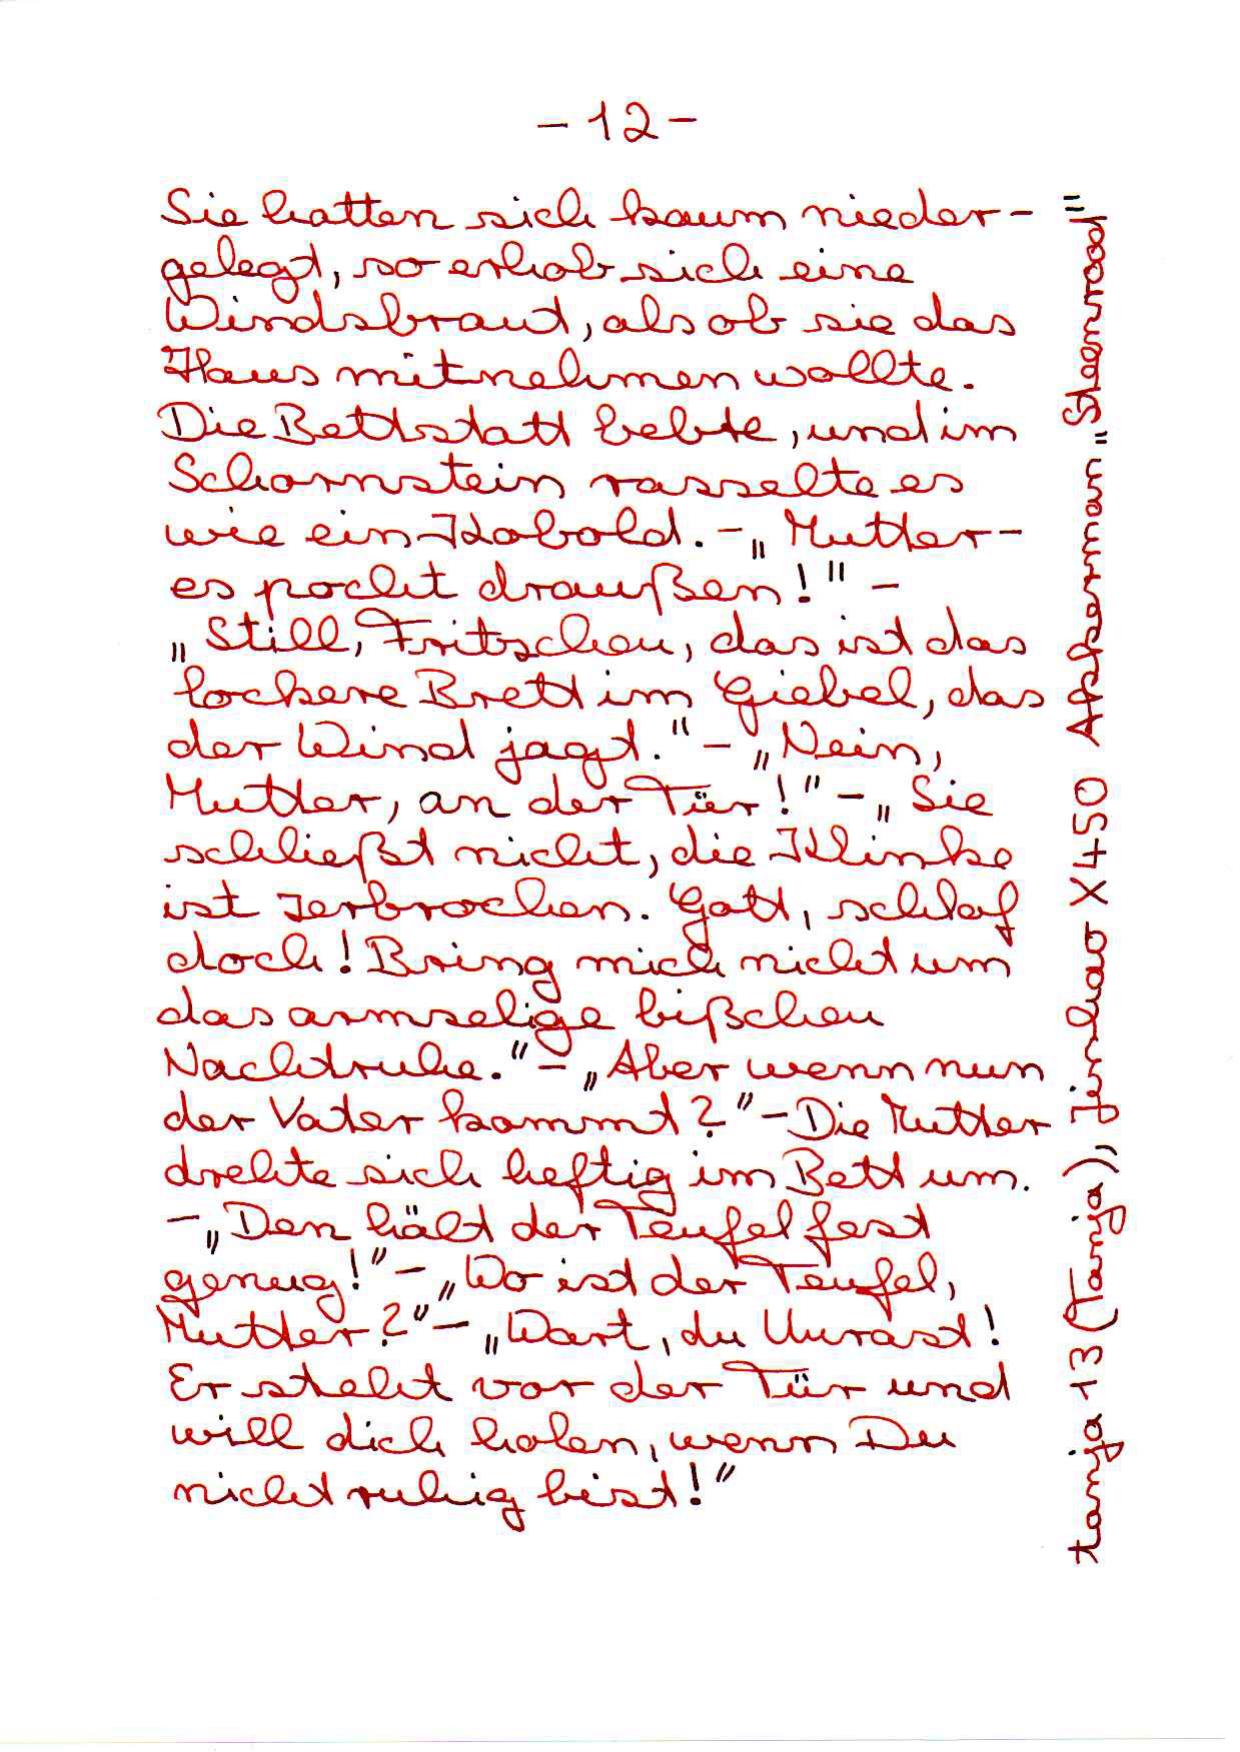 - 12 -
Sie hatten sich kaum nieder-
gelegt, so erhob sich eine
Windsbraut, als ob sie das
Haus mitnehmen wollte.
Die Bettstatt bebte, und im
Schornstein rasselte es
wie ein Kobold. - „Mutter -
es pocht draußen!" -
„Still, Fritzchen, das ist das
lockere Brett im Giebel, das
der Wind jagt." - „Nein,
Mutter, an der Tür!" - „Sie
schließt nicht, die Klinke
ist zerbrochen. Gott, schlaf
doch! Bring mich nicht um
das armselige bißchen
Nachtruhe." - „Aber wenn nun
der Vater kommt?" - Die Mutter
drehte sich heftig im Bett um.
- „Den hält der Teufel fest
genug!" - „Wo ist der Teufel,
Mutter?" - „Wart, du Unrast!
Er steht vor der Tür und
will dich holen, wenn Du
nicht ruhig bist!"
tanja 13 (Tanja), Jinhao X450 Akkerman „Steenrood"